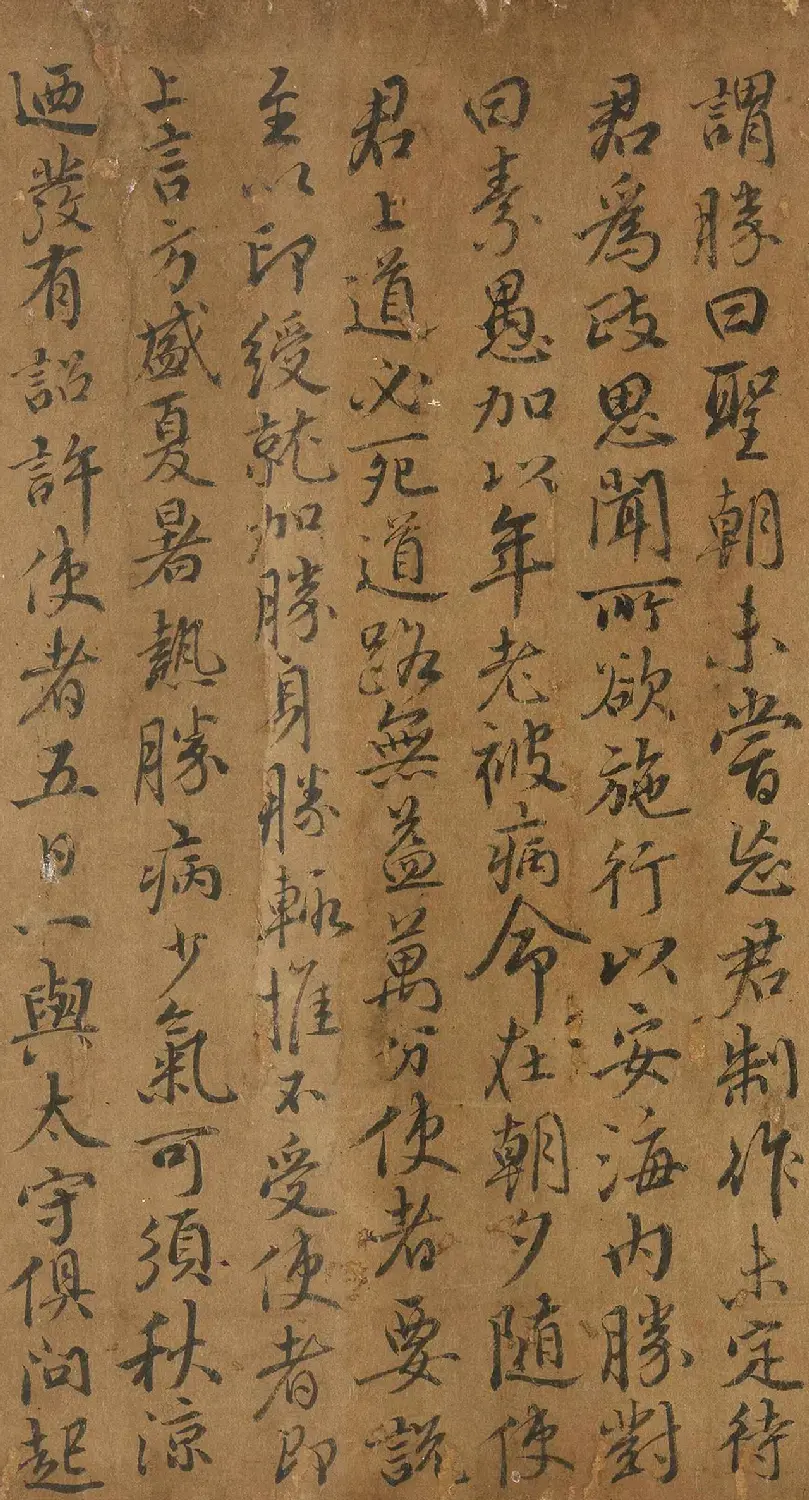 謂勝曰聖朝未嘗忘君制作未定待
君爲政思聞所欲施行以安海内勝對
曰素愚加以年老被病命在朝夕隨使
君上道必死道路無益萬分使者要説
至以印綬就加勝身勝輒推不受使者即
上言方盛夏暑熱勝病少氣可須秋涼
迺發有詔許使者五日一與太守俱問起